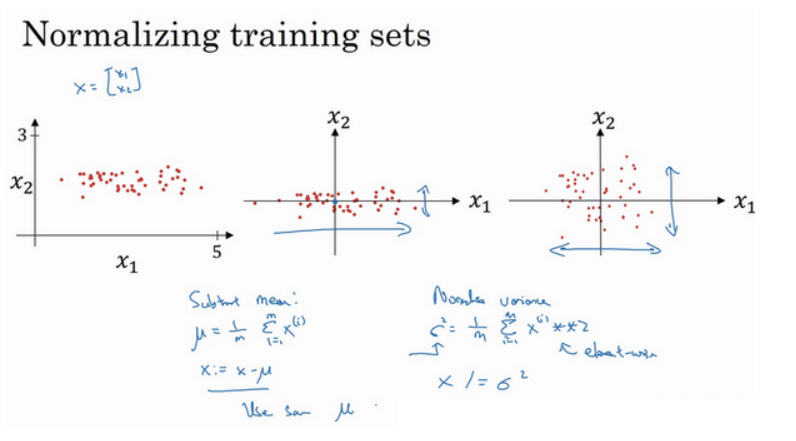 Normalizing training sets
x = [x₁ x₂]
3
x₂
x₁
5
x₂
x₁
x₂
x₁
Subtract mean:
μ = 1/m Σ_{i=1}^{m} x^{(i)}
x := x - μ
Use same μ
Normalize variance
σ² = 1/m Σ_{i=1}^{m} x^{(i)} ** 2
element-wise
x /= σ²